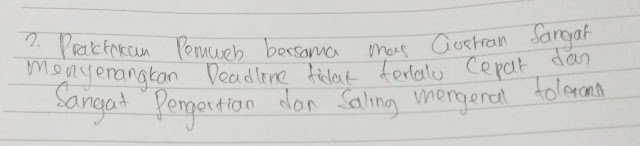 ?. Praktekun Pemweb bersama mas Gostran Sangat
menyenangkan Deadline tidak terlalu Cepat dan
Sangat Pengertian dan Saling mengenal toleransi